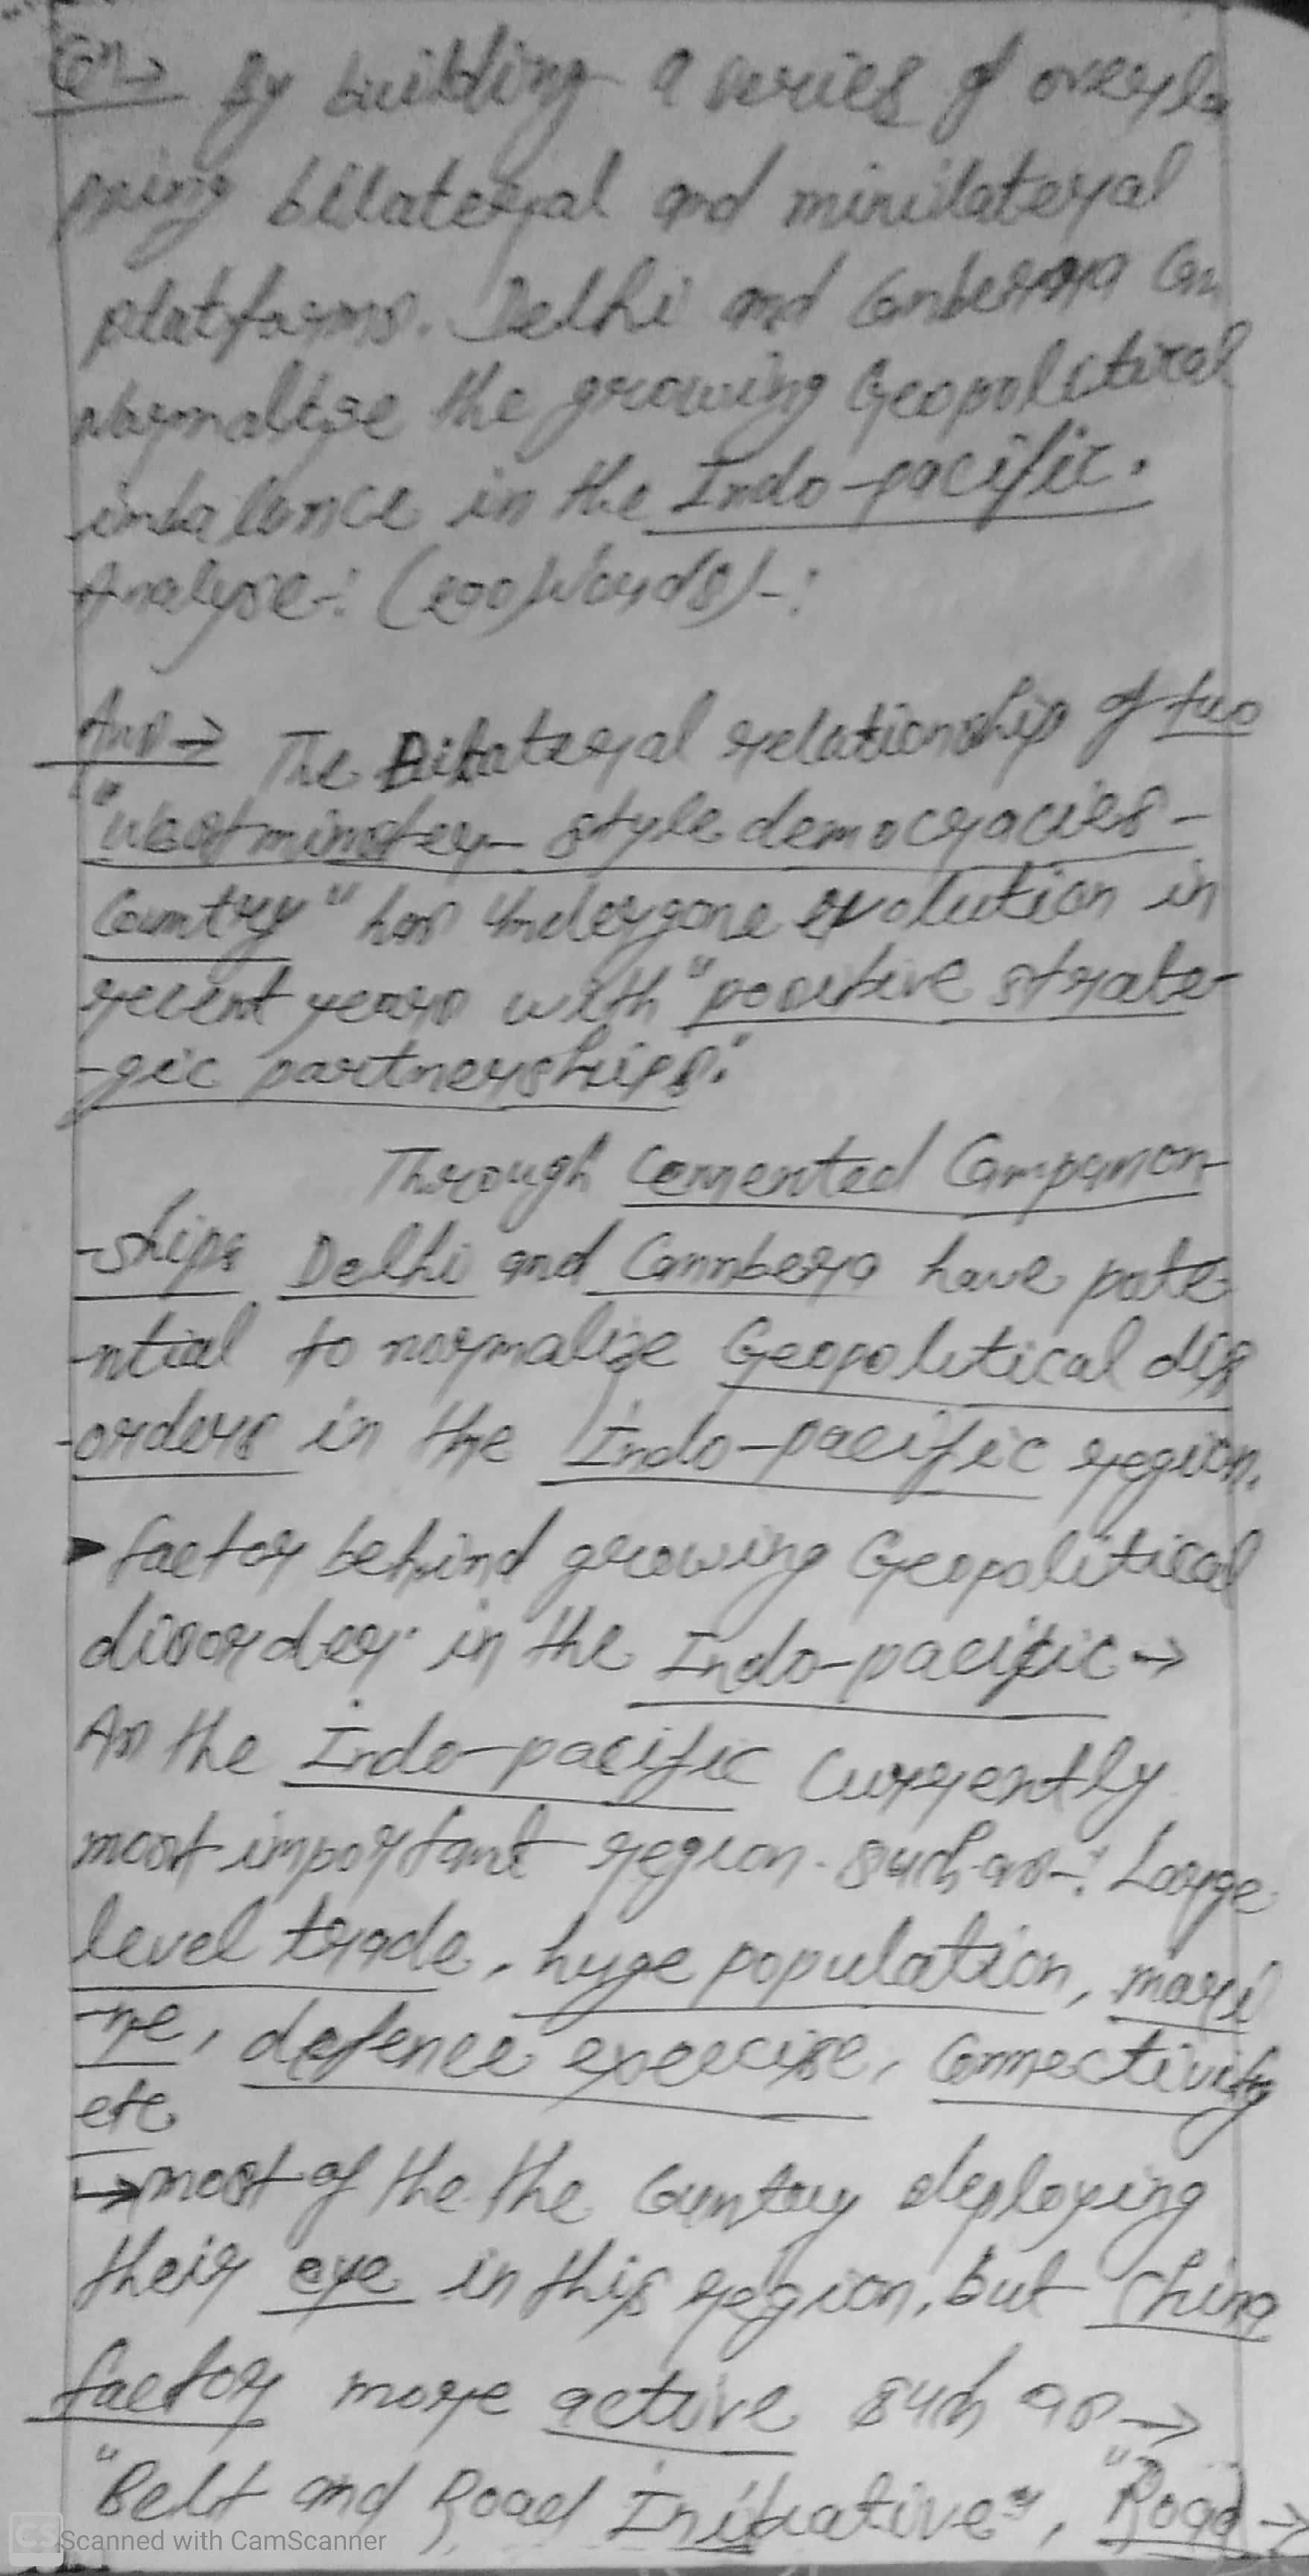 Qn→ By building a series of overla
pping bilateral and minilateral
platforms. Delhi and Canberra Can
Normalize the growing Geopolitical
imbalance in the Indo-pacific.
Analyse-: (200)Words)-:
Ans→ The Bilateral relationship of two
"Westminster- style democracies-
Country" has undergone evolution in
recent years with "positive strate-
-gic partnerships."
Through Cemented Companion-
-ships Delhi and Cannbera have pote-
-ntial to normalize Geopolitical dis
-orders in the Indo-pacific region.
▸ factor behind growing Geopolitical
disorder in the Indo-pacific→
As the Indo-pacific Currently
most important region. such as-: Large
level trade, huge population, mari
-ne, defence exercise, Connectivity
etc
↳ most of the the Country deploying
their eye in this region, but China
factor more active such as→
"Belt and Road Initiative", "Road→
Scanned with CamScanner
CS